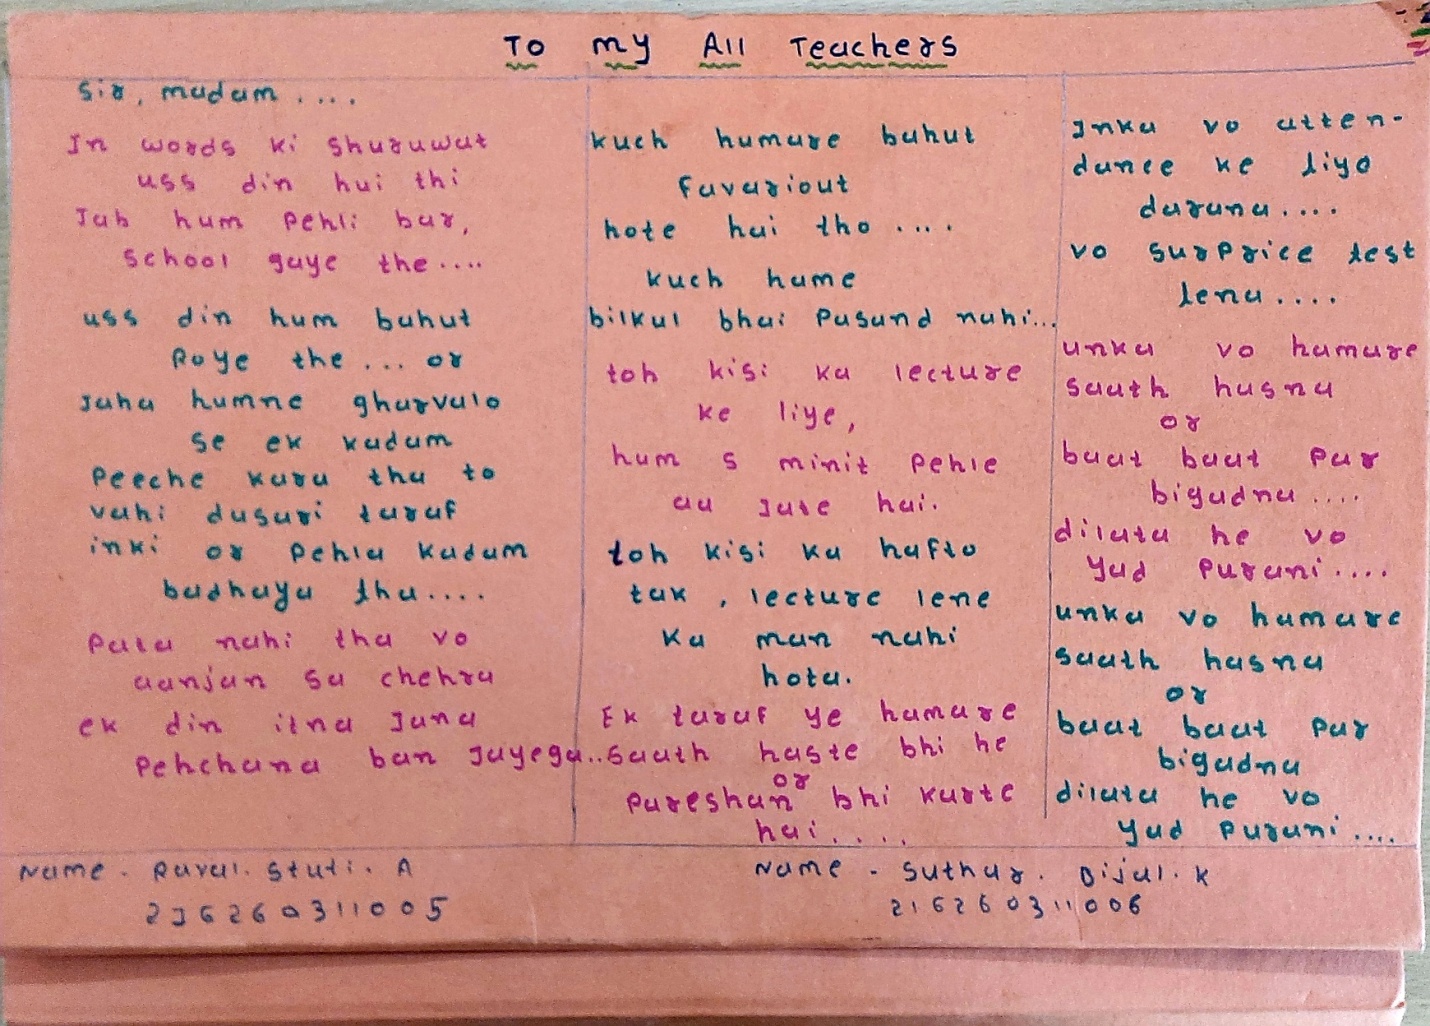 To my All Teachers
Sir, madam ....
In words ki Shuruwat
uss din hui thi
Jab hum Pehli bar,
School gaye the....
uss din hum bahut
Roye the ... or
Jaha humne gharvalo
Se ek kadam
Peeche kara tha to
vahi dusari taraf
inki or Pehla kadam
badhaya tha....
Pata nahi tha vo
aanjan sa chehra
ek din itna Jana
Pehchana ban Jayega..
kuch humare bahut
favariout
hote hai tho ....
kuch hame
bilkul bhai Pasand nahi...
toh kisi ka lecture
ke liye,
hum 5 minit Pehle
aa Jate hai.
toh kisi ka hafto
tak , lecture lene
Ka man nahi
hota.
Ek taraf ye hamare
Saath haste bhi he
or
Pareshan bhi karte
hai....
Inka vo atten-
dance ke liye
darana....
vo SurPrice test
lena....
unka vo hamare
saath hasna
or
baat baat Par
bigadna ....
dilata he vo
Yad Purani....
unka vo hamare
saath hasna
or
baat baat Par
bigadna
dilata he vo
Yad Purani....
Name - Raval. Stuti. A
216260311005
Name - Suthar. Bijal. K
216260311006